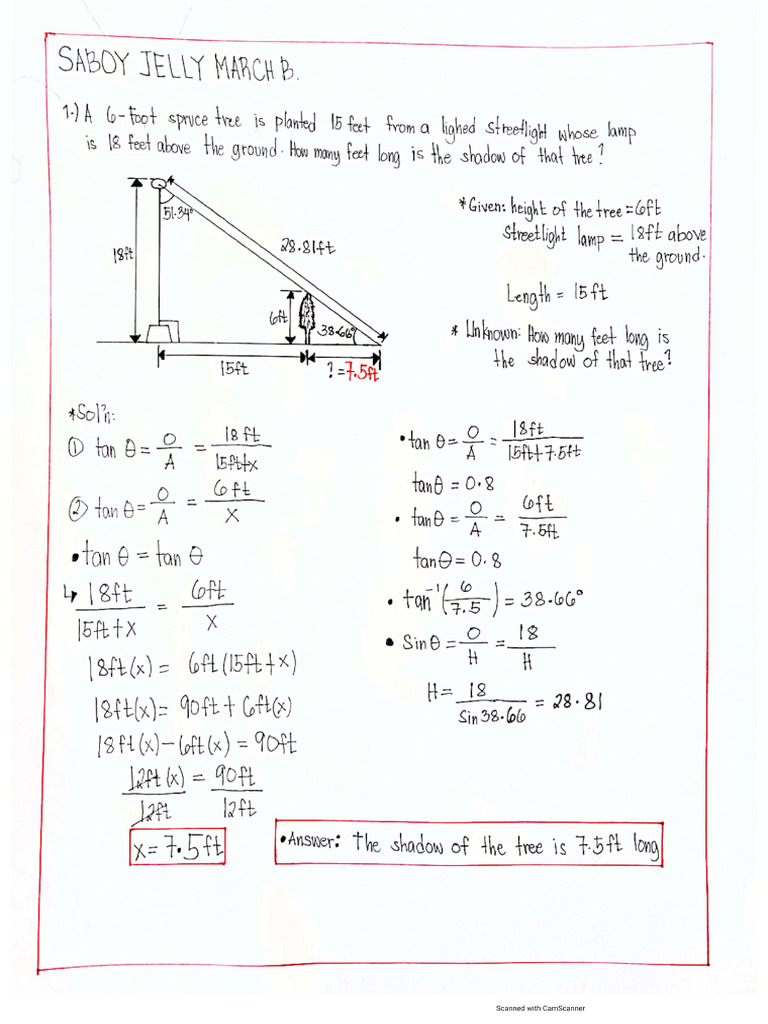 SABOY JELLY MARCH B.
1.) A 6-foot spruce tree is planted 15 feet from a lighed streetlight whose lamp
is 18 feet above the ground. How many feet long is the shadow of that tree?
51.34°
18ft
28.81ft
6ft
38.66°
15ft
? = 7.5ft
*Given: height of the tree = 6ft
Streetlight lamp = 18ft above
the ground.
Length = 15ft
* Unknown: How many feet long is
the shadow of that tree?
*Sol'n:
① tan θ = O/A = 18ft/15ft+x
② tan θ = O/A = 6ft/x
• tan θ = tan θ
↳ 18ft/15ft+x = 6ft/x
18ft(x) = 6ft(15ft+x)
18ft(x) = 90ft + 6ft(x)
18ft(x) - 6ft(x) = 90ft
12ft(x)/12ft = 90ft/12ft
x = 7.5ft
• tan θ = O/A = 18ft/15ft+7.5ft
tan θ = 0.8
• tan θ = O/A = 6ft/7.5ft
tan θ = 0.8
• tan⁻¹(6/7.5) = 38.66°
• Sin θ = O/H = 18/H
H = 18/Sin 38.66 = 28.81
• Answer: The shadow of the tree is 7.5ft long
Scanned with CamScanner